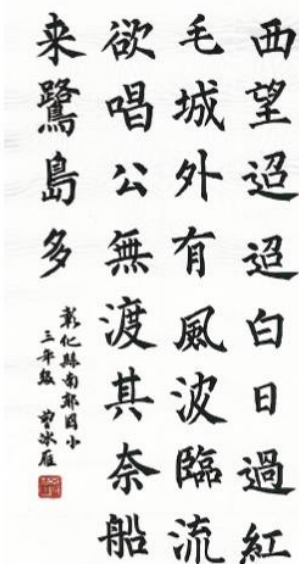 西望迢迢白日過紅
毛城外有風波臨流
欲唱公無渡其奈船
来鷺島多
彰化縣南郭國小
三年級 曾冰雁